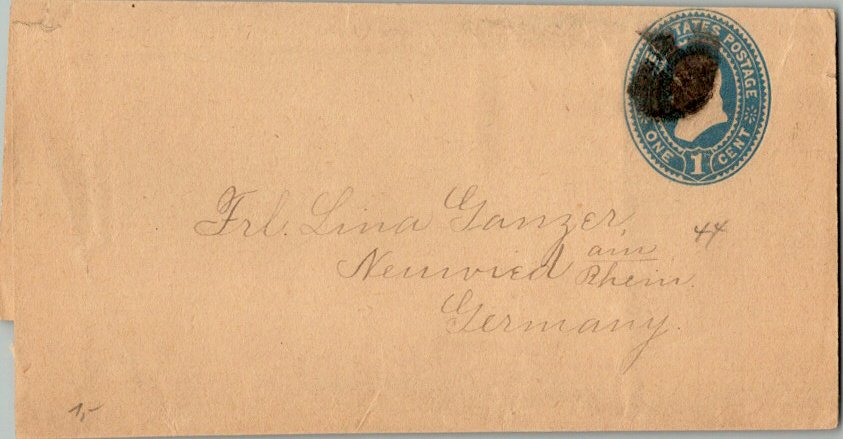 TATES POSTAGE
ONE 1 CENT
Frl. Lina Ganzer,
44
Neuwied am Rhein.
Germany.
1,-